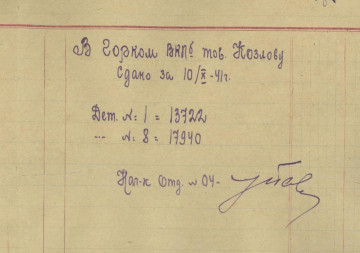 В Горком ВКПб тов. Козлову
Сдано за 10/X-41г.
Дет. № 1 = 13722
-"- № 8 = 17940
Нач-к Отд.